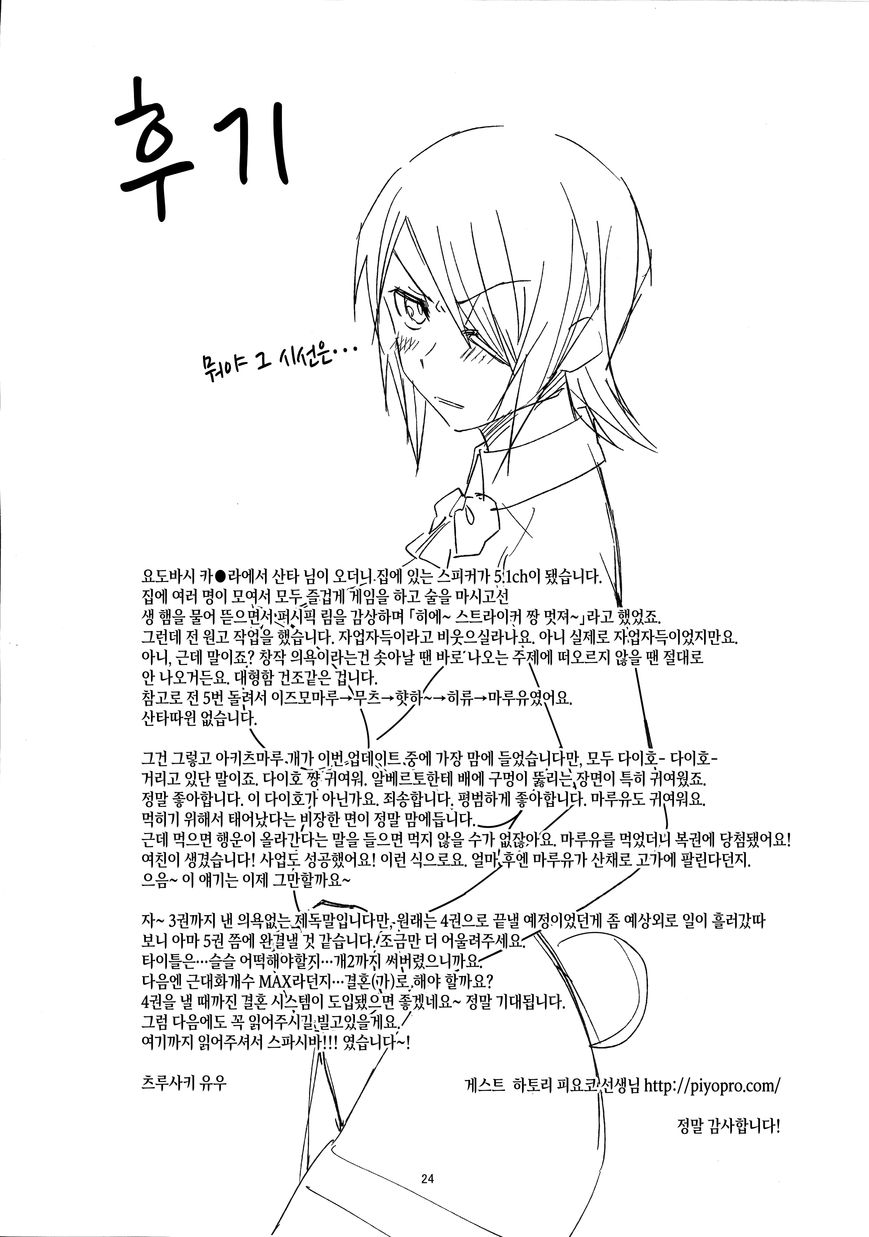 후기
뭐야 그 시선은···
요도바시 카●라에서 산타 님이 오더니 집에 있는 스피커가 5.1ch이 됐습니다.
집에 여러 명이 모여서 모두 즐겁게 게임을 하고 술을 마시고선
생 햄을 물어 뜯으면서 퍼시픽 림을 감상하며 「히에~ 스트라이커 짱 멋져~」라고 했었죠.
그런데 전 원고 작업을 했습니다. 자업자득이라고 비웃으실라나요. 아니 실제로 자업자득이었지만요.
아니, 근데 말이죠? 창작 의욕이라는건 솟아날 땐 바로 나오는 주제에 떠오르지 않을 땐 절대로
안 나오거든요. 대형함 건조같은 겁니다.
참고로 전 5번 돌려서 이즈모마루→무츠→햣하~→히류→마루유였어요.
산타따윈 없습니다.
그건 그렇고 아키츠마루 개가 이번 업데이트 중에 가장 맘에 들었습니다만, 모두 다이호- 다이호-
거리고 있단 말이죠. 다이호 쨩 귀여워. 알베르토한테 배에 구멍이 뚫리는 장면이 특히 귀여웠죠.
정말 좋아합니다. 이 다이호가 아닌가요. 죄송합니다. 평범하게 좋아합니다. 마루유도 귀여워요.
먹히기 위해서 태어났다는 비장한 면이 정말 맘에듭니다.
근데 먹으면 행운이 올라간다는 말을 들으면 먹지 않을 수가 없잖아요. 마루유를 먹었더니 복권에 당첨됐어요!
여친이 생겼습니다! 사업도 성공했어요! 이런 식으로요. 얼마 후엔 마루유가 산채로 고가에 팔린다던지.
으음~ 이 얘기는 이제 그만할까요~
자~ 3권까지 낸 의욕없는 제독말입니다만, 원래는 4권으로 끝낼 예정이었던게 좀 예상외로 일이 흘러갔따
보니 아마 5권 쯤에 완결낼 것 같습니다. 조금만 더 어울려주세요.
타이틀은···슬슬 어떡해야할지···개2까지 써버렸으니까요.
다음엔 근대화개수 MAX라던지···결혼(가)로 해야 할까요?
4권을 낼 때까진 결혼 시스템이 도입됐으면 좋겠네요~ 정말 기대됩니다.
그럼 다음에도 꼭 읽어주시길 빌고있을게요.
여기까지 읽어주셔서 스파시바!!! 였습니다~!
츠루사키 유우
게스트 하토리 피요코 선생님 http://piyopro.com/
정말 감사합니다!
24